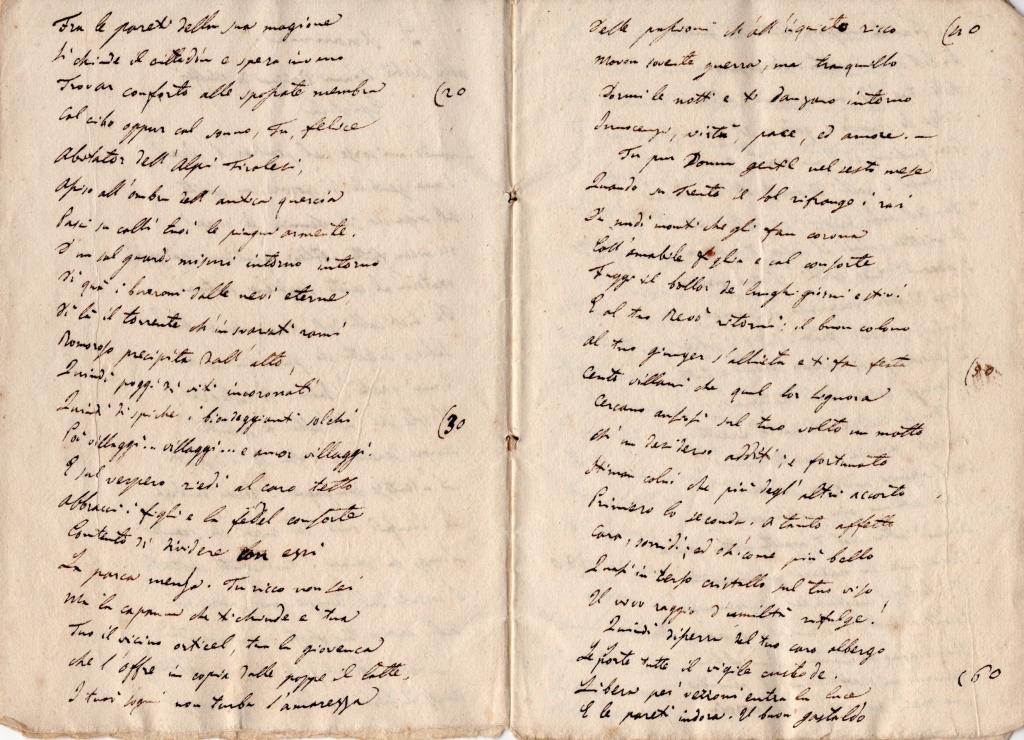 Fra le pareti della sua magione
Si chiude il cittadin e spera invano
Trovar conforto alle spossate membra (20
Col cibo oppur col sonno, Tu, felice
Abitator dell'Alpi Tirolesi,
Assiso all'ombra dell'antica quercia
Pasci su colli tuoi le pingui armente.
D'un sol guardo misuri intorno intorno
Di quà i burroni dalle nevi eterne
Di là il torrente ch'in svariati rami
Romoroso precipita dall'alto,
Quindi poggi di viti incoronati
Quindi di spiche i biondeggianti solchi (30
Poi villaggi... villaggi... e ancor villaggi.
E sul vespero riedi al caro tetto
Abbracci i figli e la fedel consorte
Contento di dividere con essi
La parca mensa. Tu ricco non sei
Ma la capanna che ti chiude è tua
Tuo il vicino orticel, tua la giovenca
Che t'offre in copia dalle poppe il latte,
I tuoi sogni non turba l'amarezza
Delle passioni ch'all'inquieto ricco (40
Movon sovente guerra, ma tranquillo
Dormi le notti e ti danzano intorno
Innocenza, virtù, pace, ed amore. —
Tu pur Donna gentil nel sesto mese
Quando su Trento il sol rifrange i rai
Da nudi monti che gli fan corona
Coll'amabile figlia e col consorte
Fuggi il bollor de' lunghi giorni estivi
E al tuo Revò ritorni; il buon colono
Al tuo giunger s'allieta e ti fan festa (50
Cento villani che qual lor signora
Cercano ansiosi sul tuo volto un motto
Ch'un desiderio additi; e fortunato
Stiman colui che più degl'altri accorto
Primiero lo seconda. A tanto affetto
Cara, sorridi; ed oh come più bello
Quasi in terso cristallo sul tuo viso
Il vivo raggio d'umiltà rifulge!
Quindi disserra del tuo caro albergo
Le porte tutte il vigile custode. (60
Libera pei veroni entra la luce
E le pareti indora. Il buon gastaldo